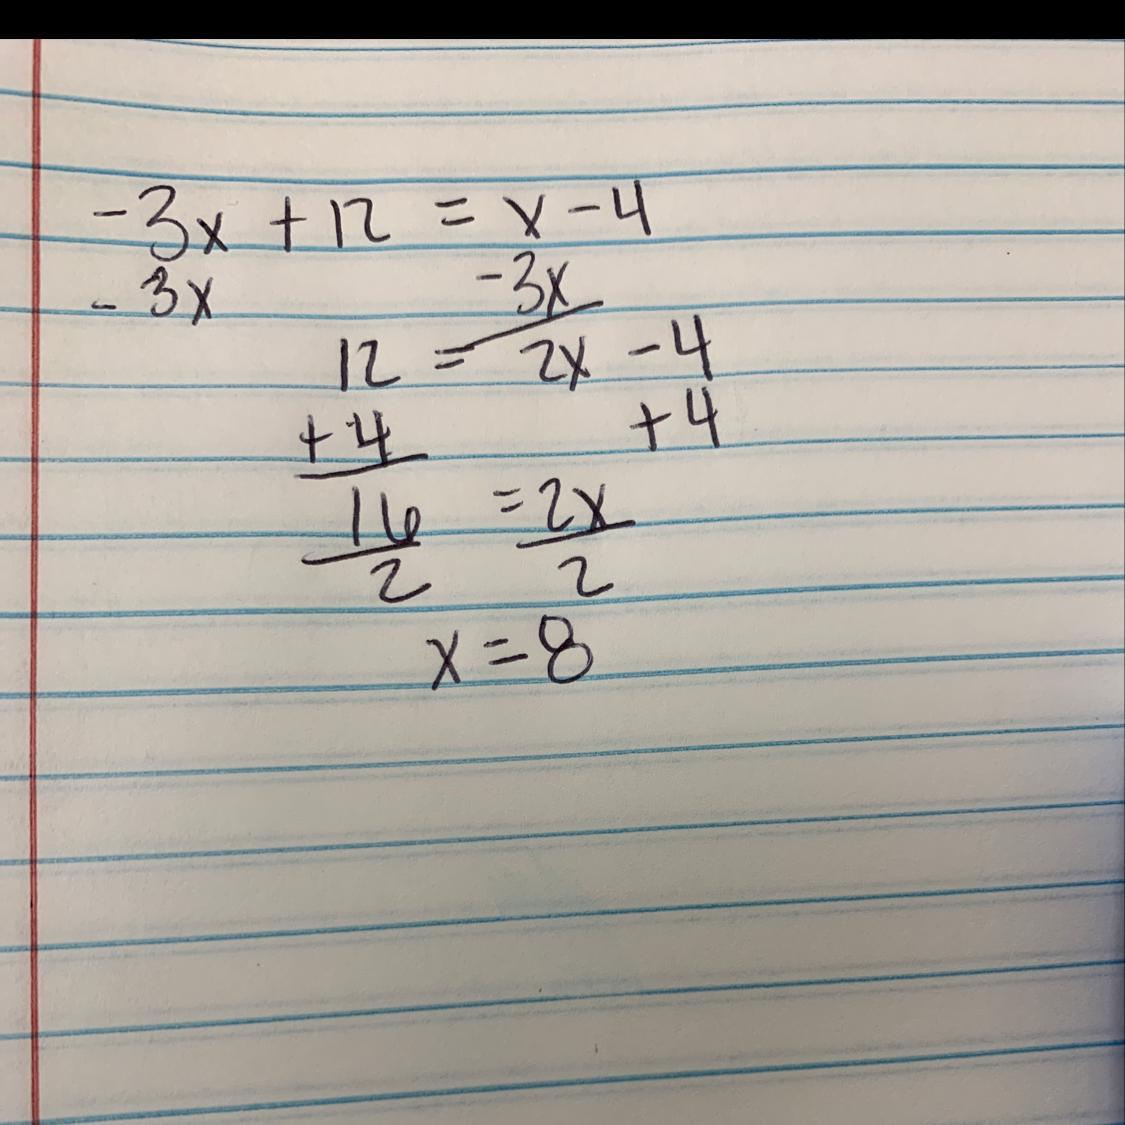 -3x + 12 = x - 4
- 3x -3x
12 = 2x - 4
+ 4 + 4
16 = 2x
2 2
x = 8